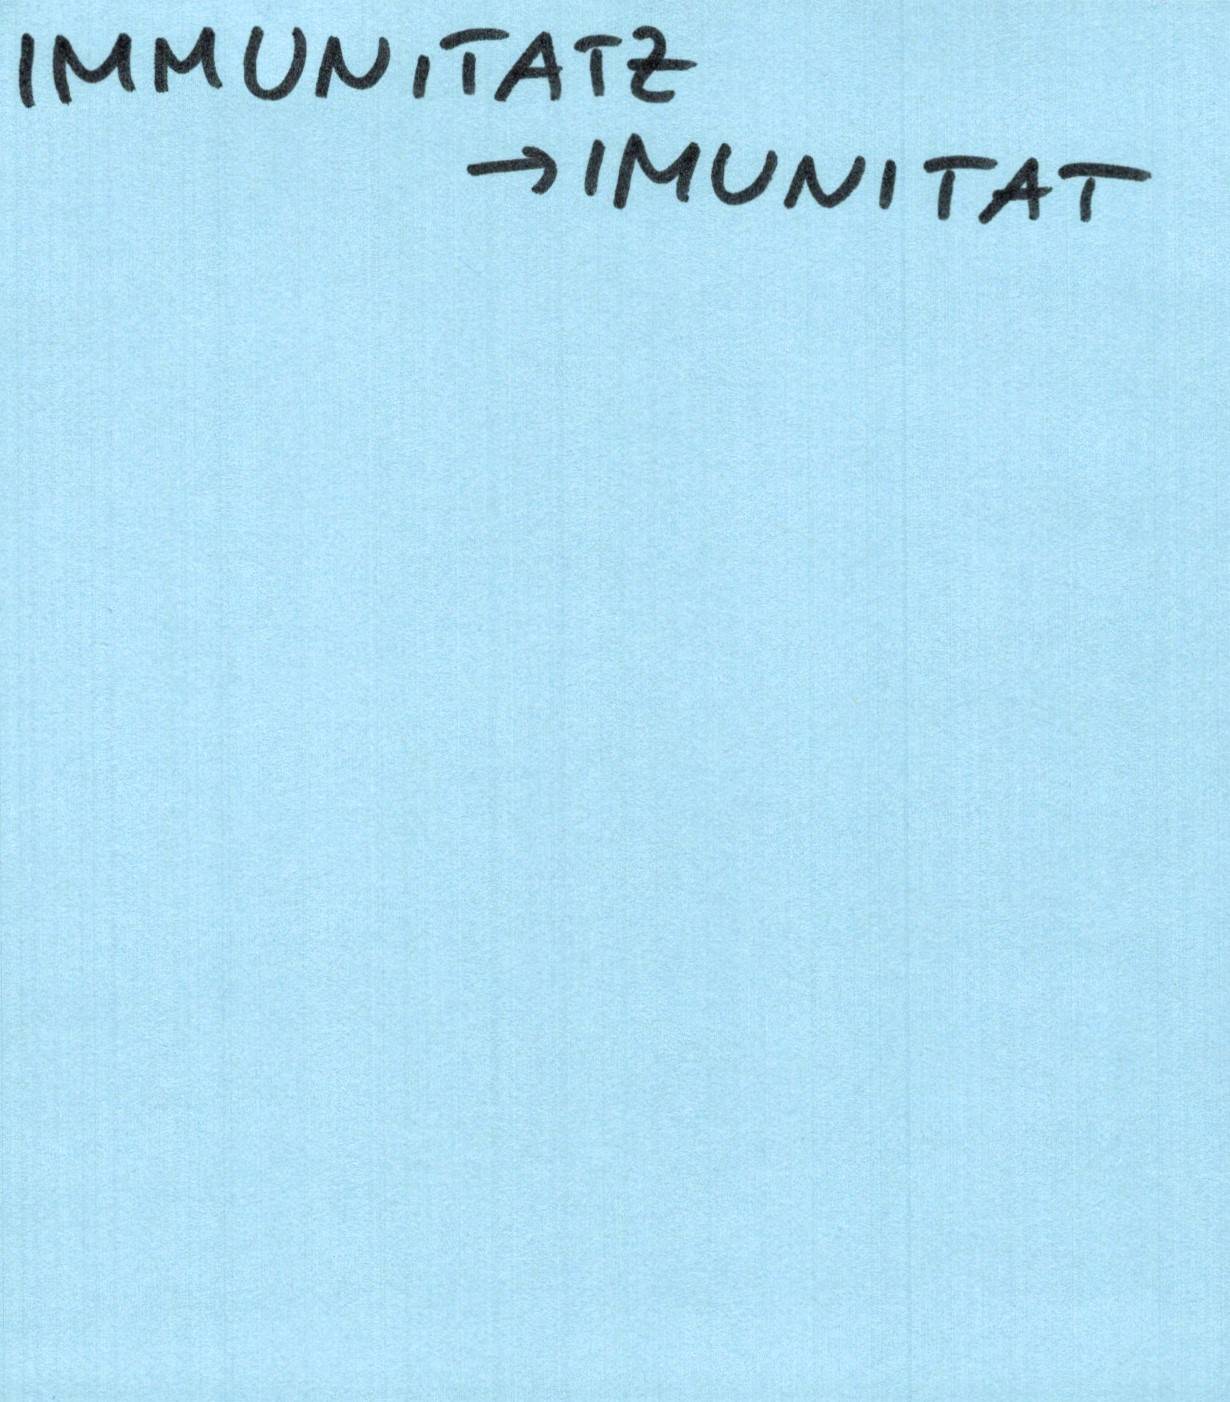 IMMUNITATZ
→ IMUNITAT